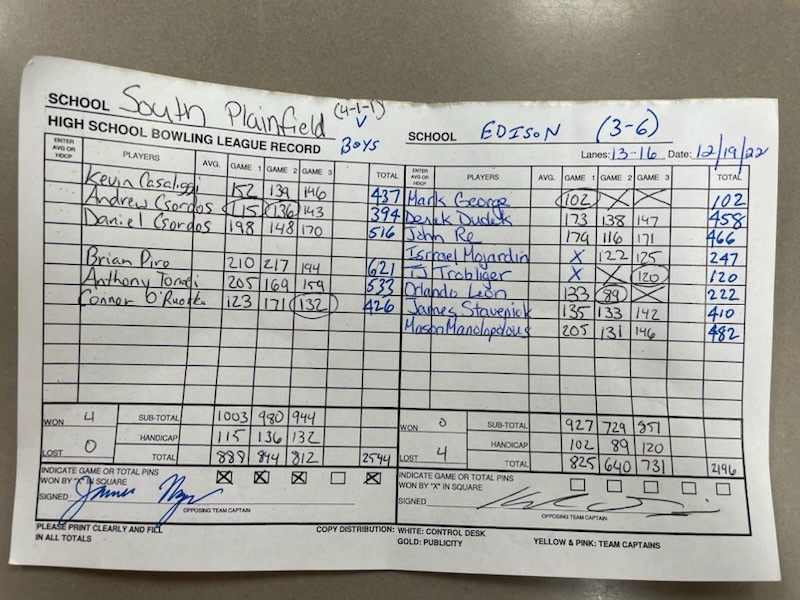 SCHOOL South Plainfield (4-1-1)
HIGH SCHOOL BOWLING LEAGUE RECORD BOYS
ENTER AVG OR HDCP PLAYERS AVG. GAME 1 GAME 2 GAME 3 TOTAL
Kevin Casaliggi 152 139 146 437
Andrew Csordos 115 136 143 394
Daniel Csordos 198 148 170 516
Brian Piro 210 217 194 621
Anthony 205 169 159 533
Connor O'Ruorke 123 171 132 426
WON 4 SUB-TOTAL 1003 980 944
HANDICAP 115 136 132
LOST 0 TOTAL 888 844 812 2544
INDICATE GAME OR TOTAL PINS
WON BY "X" IN SQUARE X X X X
SIGNED James
OPPOSING TEAM CAPTAIN
SCHOOL EDISON (3-6)
Lanes: 13-16 Date: 12/19/22
ENTER AVG OR HDCP PLAYERS AVG. GAME 1 GAME 2 GAME 3 TOTAL
Mark George 102 X X 102
Derek Dudek 173 138 147 458
John Re 179 116 171 466
Isrrael Mojardin X 122 125 247
TJ Trobliger X X 120 120
Orlando Leon 133 89 X 222
James Stavenick 135 133 142 410
Mason Manolopolous 205 131 146 482
WON 0 SUB-TOTAL 927 729 851
HANDICAP 102 89 120
LOST 4 TOTAL 825 640 731 2196
INDICATE GAME OR TOTAL PINS
WON BY "X" IN SQUARE
SIGNED
OPPOSING TEAM CAPTAIN
PLEASE PRINT CLEARLY AND FILL
IN ALL TOTALS
COPY DISTRIBUTION: WHITE: CONTROL DESK
GOLD: PUBLICITY YELLOW & PINK: TEAM CAPTAINS